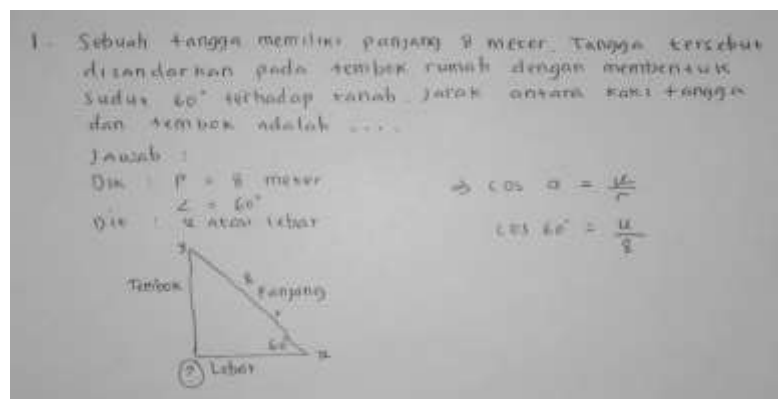 1. Sebuah tangga memiliki panjang 8 meter. Tangga tersebut
disandarkan pada tembok rumah dengan membentuk
sudut 60° terhadap tanah. Jarak antara kaki tangga
dan tembok adalah ....
Jawab :
Dik : P = 8 meter
∠ = 60°
Dit : x atau lebar
⇒ cos a = x/r
cos 60° = x/8
y
Tembok
8
Panjang
r
60°
x
? Lebar